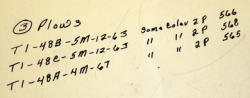 ③ Plows
T1-48B-5M-12-63 Soma Color 2P 566
T1-48C-5M-12-63 " " 2P 568
T1-48A-4M-67 " " 2P 565